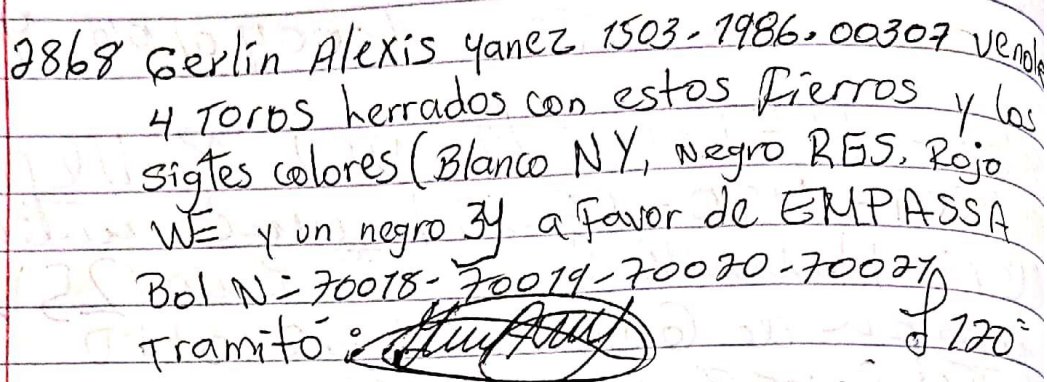 2868 Gerlin Alexis Yanez 1503-1986-00307 vende
4 Toros herrados con estos Fierros y los
sigtes colores (Blanco NY, Negro RES, Rojo
WE y un negro 3y a Favor de EMPASSA
Bol N=70018-70019-70020-70021
Tramitó:
120=